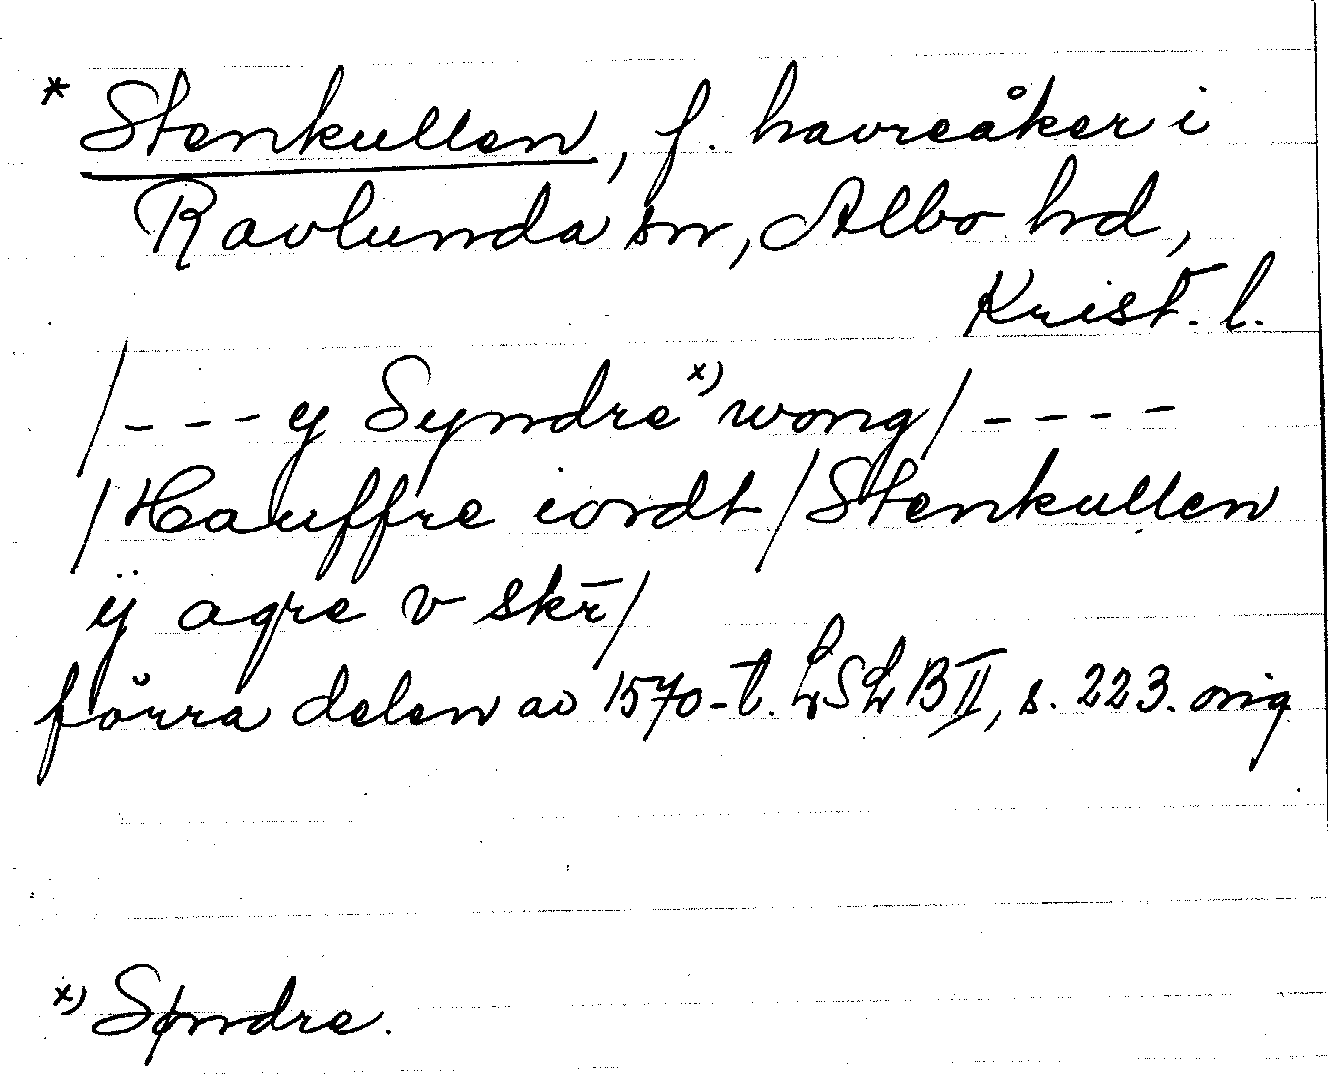 * Stenkullen, f. havreåker i
Ravlunda sn, Albo hd,
Krist. l.
/- - - y Syndre x) wong/ - - - -
/Hauffre iordt/Stenkullen
ÿ agre v skr̄/
förra delen av 1570-t. LSLB II, s. 223. orig
x) Søndre.